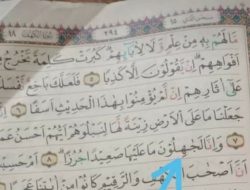 ٢٩٤
مَّا لَهُم بِهِۦ مِنْ عِلْمٍ وَلَا لِـَٔابَآئِهِمْ كَبُرَتْ كَلِمَةً تَخْرُجُ
أَفْوَٰهِهِمْ إِن يَقُولُونَ إِلَّا كَذِبًا ٥ فَلَعَلَّكَ بَـٰخِعٌ
عَلَىٰٓ ءَاثَـٰرِهِمْ إِن لَّمْ يُؤْمِنُوا۟ بِهَـٰذَا ٱلْحَدِيثِ أَسَفًا ٦
جَعَلْنَا مَا عَلَى ٱلْأَرْضِ زِينَةً لَّهَا لِنَبْلُوَهُمْ أَيُّهُمْ أَحْسَنُ عَمَلًا
٧ وَإِنَّا لَجَـٰعِلُونَ مَا عَلَيْهَا صَعِيدًا جُرُزًا ٨ أَمْ حَسِبْتَ
أَنَّ أَصْحَـٰبَ وَٱلرَّقِيمِ كَانُوا۟ مِنْ